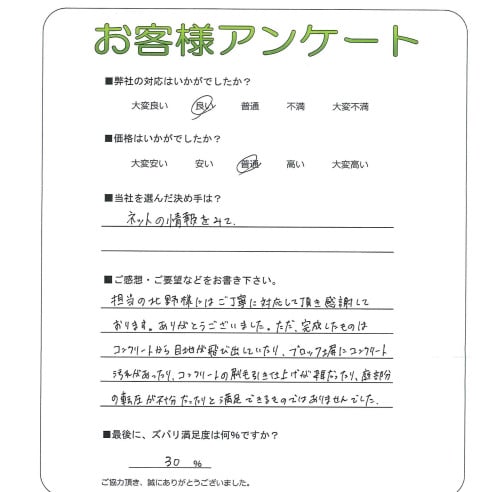 お客様アンケート
■弊社の対応はいかがでしたか?
大変良い 良い 普通 不満 大変不満
■価格はいかがでしたか?
大変安い 安い 普通 高い 大変高い
■当社を選んだ決め手は?
ネットの情報をみて.
■ご感想・ご要望などをお書き下さい。
担当の北野様にはご丁寧に対応して頂き感謝して
おります。ありがとうございました。ただ、完成したものは
コンクリートから目地が飛び出していたり、ブロック土屑にコンクリート
汚れがあったり、コンクリートの刷毛引き仕上げが雑だったり、庭部分
の転圧が不十分だったりと満足できるものではありませんでした.
■最後に、ズバリ満足度は何%ですか?
30 %
ご協力頂き、誠にありがとうございました。